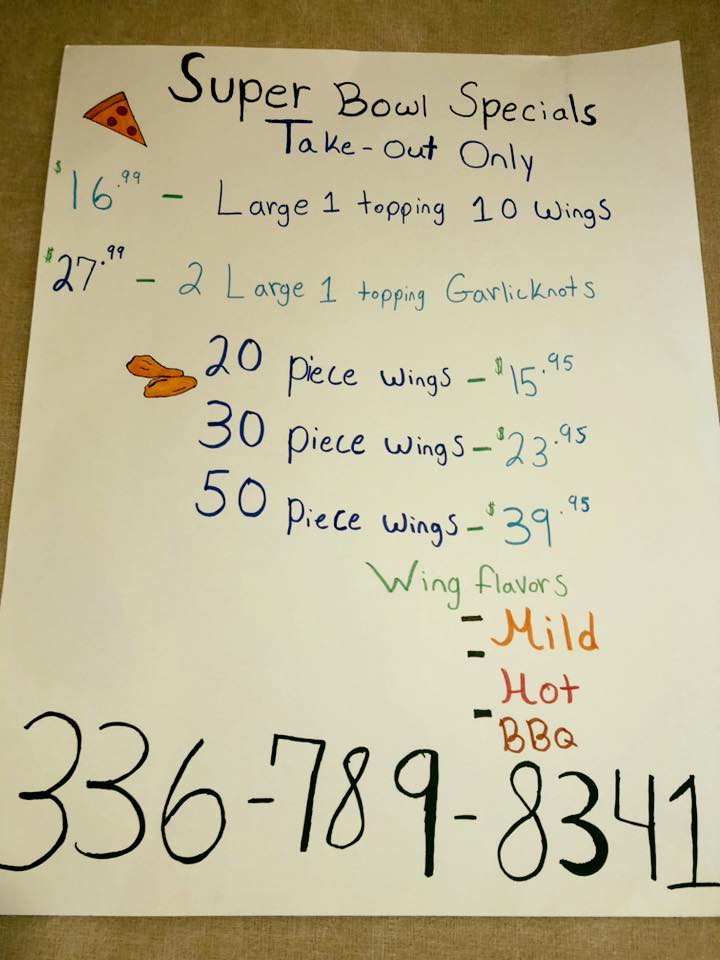 Super Bowl Specials
Take-Out Only
$16.99 - Large 1 topping 10 Wings
$27.99 - 2 Large 1 topping Garlicknots
20 piece wings - $15.95
30 piece wings - $23.95
50 piece wings - $39.95
Wing flavors
- Mild
- Hot
- BBQ
336-789-8341